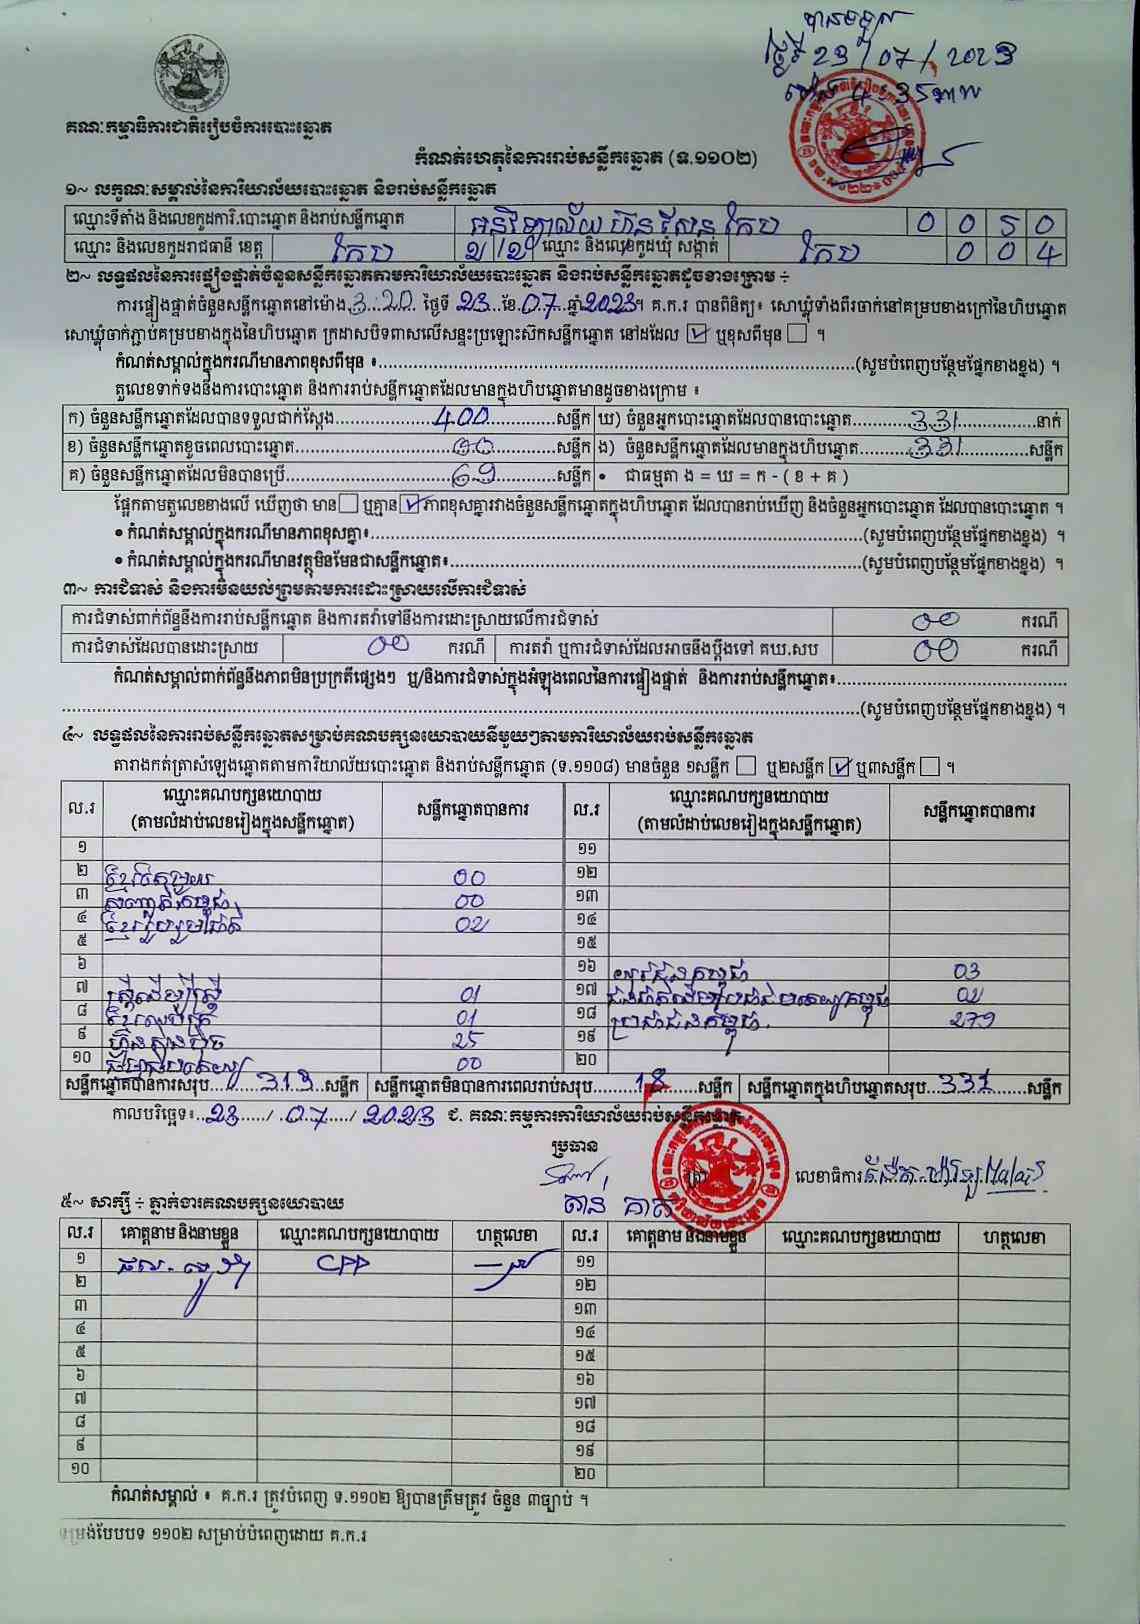 បានទទួល
ថ្ងៃទី 23/07/2023
ម៉ោង 4:35 នាទី
គណៈកម្មាធិការជាតិរៀបចំការបោះឆ្នោត
កំណត់ហេតុនៃការរាប់សន្លឹកឆ្នោត (ទ.១១០២)
១~ លក្ខណៈសម្គាល់នៃការិយាល័យបោះឆ្នោត និងរាប់សន្លឹកឆ្នោត
ឈ្មោះទីតាំង និងលេខកូដការិ.បោះឆ្នោត និងរាប់សន្លឹកឆ្នោត អនុវិទ្យាល័យ ហ៊ុន សែន កែប 0 0 5 0
ឈ្មោះ និងលេខកូដរាជធានី ខេត្ត កែប ឈ្មោះ និងលេខកូដឃុំ សង្កាត់ កែប 0 0 4
២~ លទ្ធផលនៃការផ្ទៀងផ្ទាត់ចំនួនសន្លឹកឆ្នោតតាមការិយាល័យបោះឆ្នោត និងរាប់សន្លឹកឆ្នោតដូចខាងក្រោម ÷
ការផ្ទៀងផ្ទាត់ចំនួនសន្លឹកឆ្នោតនៅម៉ោង 3:20 ថ្ងៃទី 23 ខែ 07 ឆ្នាំ 2023។ គ.ក.រ បានពិនិត្យ៖ សោឃ្លុំទាំងពីរចាក់នៅគម្របខាងក្រៅនៃហិបឆ្នោត
សោឃ្លុំចាក់ភ្ជាប់គម្របខាងក្នុងនៃហិបឆ្នោត ក្រដាសបិទពាសលើសន្ទះប្រឡោះស៊កសន្លឹកឆ្នោត នៅដដែល ☑ ឬខុសពីមុន ☐ ។
កំណត់សម្គាល់ក្នុងករណីមានភាពខុសពីមុន ៖ (សូមបំពេញបន្ថែមផ្នែកខាងខ្នង) ។
តួលេខទាក់ទងនឹងការបោះឆ្នោត និងការរាប់សន្លឹកឆ្នោតដែលមានក្នុងហិបឆ្នោតមានដូចខាងក្រោម ៖
ក) ចំនួនសន្លឹកឆ្នោតដែលបានទទួលជាក់ស្ដែង 400 សន្លឹក ឃ) ចំនួនអ្នកបោះឆ្នោតដែលបានបោះឆ្នោត 331 នាក់
ខ) ចំនួនសន្លឹកឆ្នោតខូចពេលបោះឆ្នោត 00 សន្លឹក ង) ចំនួនសន្លឹកឆ្នោតដែលមានក្នុងហិបឆ្នោត 331 សន្លឹក
គ) ចំនួនសន្លឹកឆ្នោតដែលមិនបានប្រើ 69 សន្លឹក • ជាធម្មតា ង = ឃ = ក - ( ខ + គ )
ផ្អែកតាមតួលេខខាងលើ ឃើញថា មាន ☐ ឬគ្មាន ☑ ភាពខុសគ្នារវាងចំនួនសន្លឹកឆ្នោតក្នុងហិបឆ្នោត ដែលបានរាប់ឃើញ និងចំនួនអ្នកបោះឆ្នោត ដែលបានបោះឆ្នោត ។
• កំណត់សម្គាល់ក្នុងករណីមានភាពខុសគ្នា៖ (សូមបំពេញបន្ថែមផ្នែកខាងខ្នង) ។
• កំណត់សម្គាល់ក្នុងករណីមានវត្ថុមិនមែនជាសន្លឹកឆ្នោត៖ (សូមបំពេញបន្ថែមផ្នែកខាងខ្នង) ។
៣~ ការជំទាស់ និងការមិនយល់ព្រមតាមការដោះស្រាយលើការជំទាស់
ការជំទាស់ពាក់ព័ន្ធនឹងការរាប់សន្លឹកឆ្នោត និងការតវ៉ាទៅនឹងការដោះស្រាយលើការជំទាស់ 00 ករណី
ការជំទាស់ដែលបានដោះស្រាយ 00 ករណី ការតវ៉ា ឬការជំទាស់ដែលអាចនឹងប្ដឹងទៅ គឃ.សប 00 ករណី
កំណត់សម្គាល់ពាក់ព័ន្ធនឹងភាពមិនប្រក្រតីផ្សេងៗ ឬ/និងការជំទាស់ក្នុងអំឡុងពេលនៃការផ្ទៀងផ្ទាត់ និងការរាប់សន្លឹកឆ្នោត៖
(សូមបំពេញបន្ថែមផ្នែកខាងខ្នង) ។
៤~ លទ្ធផលនៃការរាប់សន្លឹកឆ្នោតសម្រាប់គណបក្សនយោបាយនីមួយៗតាមការិយាល័យរាប់សន្លឹកឆ្នោត
តារាងកត់ត្រាសំឡេងឆ្នោតតាមការិយាល័យបោះឆ្នោត និងរាប់សន្លឹកឆ្នោត (ទ.១១០៨) មានចំនួន ១សន្លឹក ☐ ឬ២សន្លឹក ☑ ឬ៣សន្លឹក ☐ ។
ល.រ ឈ្មោះគណបក្សនយោបាយ (តាមលំដាប់លេខរៀងក្នុងសន្លឹកឆ្នោត) សន្លឹកឆ្នោតបានការ ល.រ ឈ្មោះគណបក្សនយោបាយ (តាមលំដាប់លេខរៀងក្នុងសន្លឹកឆ្នោត) សន្លឹកឆ្នោតបានការ
១ ១១
២ ខ្មែរតែមួយ 00 ១២
៣ សញ្ជាតិកម្ពុជា 00 ១៣
៤ ខ្មែររួបរួមជាតិ 02 ១៤
៥ ១៥
៦ ១៦ យុវជនកម្ពុជា 03
៧ ស្ត្រីដើម្បីស្ត្រី 01 ១៧ 02
៨ 01 ១៨ ប្រជាជនកម្ពុជា 279
៩ ហ្វ៊ុនស៊ិនប៉ិច 25 ១៩
១០ 00 ២០
សន្លឹកឆ្នោតបានការសរុប 313 សន្លឹក សន្លឹកឆ្នោតមិនបានការពេលរាប់សរុប 18 សន្លឹក សន្លឹកឆ្នោតក្នុងហិបឆ្នោតសរុប 331 សន្លឹក
កាលបរិច្ឆេទ៖ 23 / 07 / 2023 ជ. គណៈកម្មការការិយាល័យរាប់សន្លឹកឆ្នោត
ប្រធាន
លេខាធិការ
៥~ សាក្សី ÷ ភ្នាក់ងារគណបក្សនយោបាយ
ល.រ គោត្តនាម និងនាមខ្លួន ឈ្មោះគណបក្សនយោបាយ ហត្ថលេខា ល.រ គោត្តនាម និងនាមខ្លួន ឈ្មោះគណបក្សនយោបាយ ហត្ថលេខា
១ CPP ១១
២ ១២
៣ ១៣
៤ ១៤
៥ ១៥
៦ ១៦
៧ ១៧
៨ ១៨
៩ ១៩
១០ ២០
កំណត់សម្គាល់ ៖ គ.ក.រ ត្រូវបំពេញ ទ.១១០២ ឱ្យបានត្រឹមត្រូវ ចំនួន ៣ច្បាប់ ។
ទម្រង់បែបបទ ១១០២ សម្រាប់បំពេញដោយ គ.ក.រ